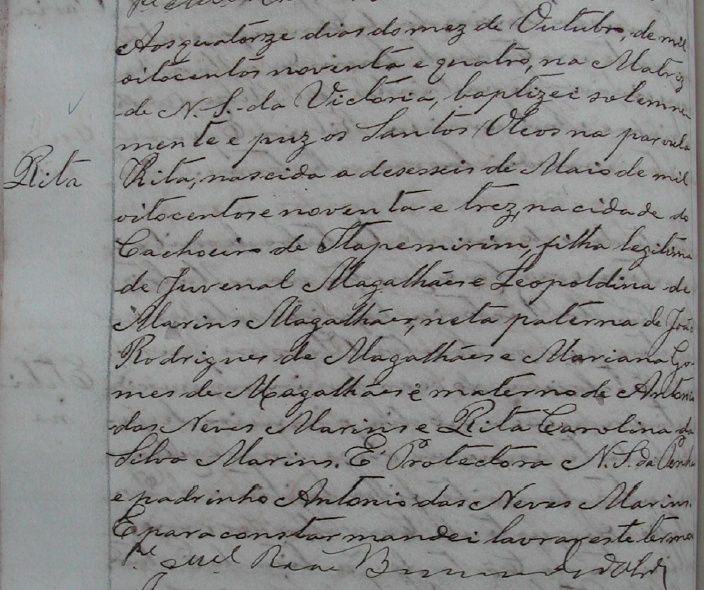 Aos quatorze dias do mez de Outubro, de mil
oitocentos noventa e quatro, na Matriz
de N. S. da Victoria, baptizei solemne
mente e puz os Santos Oleos na parvula
Rita
Rita, nascida a deseseis de Maio de mil
oitocentos e noventa e trez, na cidade do
Cachoeiro de Itapemirim, filha legitima
de Juvenal Magalhães e Leopoldina de
Marins Magalhães, neta paterna de João
Rodrigues de Magalhães e Mariana Go-
mes de Magalhães e materno de Antonio
das Neves Marins e Rita Carolina da
Silva Marins. E' Protectora N. S. da Penha
e padrinho Antonio das Neves Marins.
E para constar mandei lavrar este termo